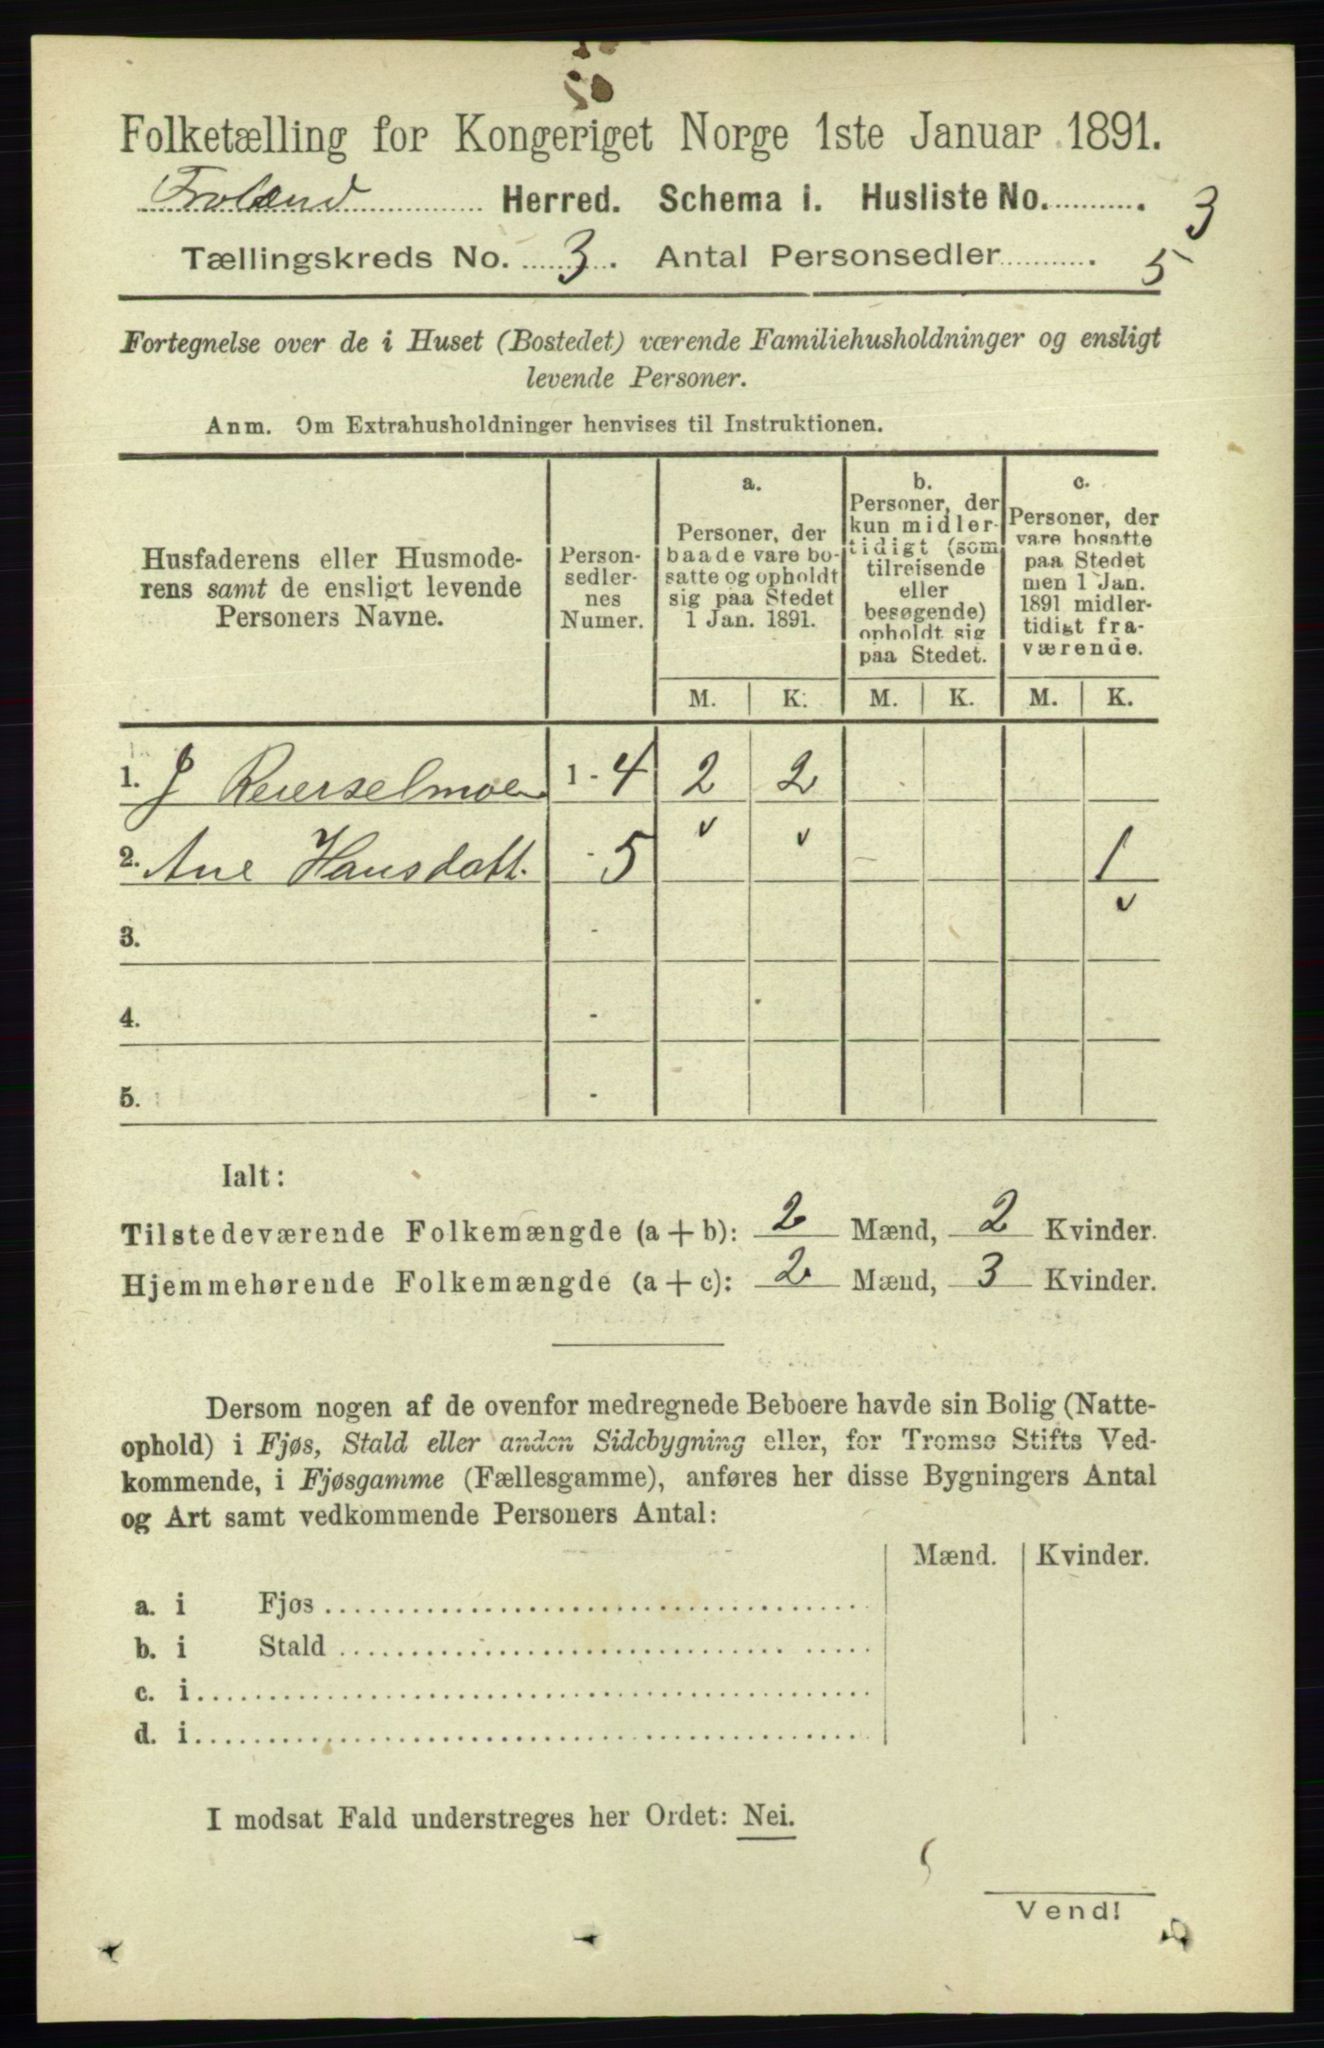 Folketælling for Kongeriget Norge 1ste Januar 1891.
Froland Herred. Schema i. Husliste No. 3
Tællingskreds No. 3. Antal Personsedler 5
Fortegnelse over de i Huset (Bostedet) værende Familiehusholdninger og ensligt
levende Personer.
Anm. Om Extrahusholdninger henvises til Instruktionen.
Husfaderens eller Husmode-
rens samt de ensligt levende
Personers Navne.
Person-
sedler-
nes
Numer.
a.
Personer, der
baade vare bo-
satte og opholdt
sig paa Stedet
1 Jan. 1891.
b.
Personer, der
kun midler-
tidigt (som
tilreisende
eller
besøgende)
opholdt sig
paa Stedet.
c.
Personer, der
vare bosatte
paa Stedet
men 1 Jan.
1891 midler-
tidigt fra-
værende.
M. K. M. K. M. K.
1. J Reierselmoen 1 - 4 2 2
2. Ane Hansdatt. - 5 1
3. -
4. -
5. -
Ialt:
Tilstedeværende Folkemængde (a + b): 2 Mænd, 2 Kvinder.
Hjemmehørende Folkemængde (a + c): 2 Mænd, 3 Kvinder.
Dersom nogen af de ovenfor medregnede Beboere havde sin Bolig (Natte-
ophold) i Fjøs, Stald eller anden Sidebygning eller, for Tromsø Stifts Ved-
kommende, i Fjøsgamme (Fællesgamme), anføres her disse Bygningers Antal
og Art samt vedkommende Personers Antal:
Mænd. Kvinder.
a. i Fjøs
b. i Stald
c. i
d. i
I modsat Fald understreges her Ordet: Nei.
Vend!